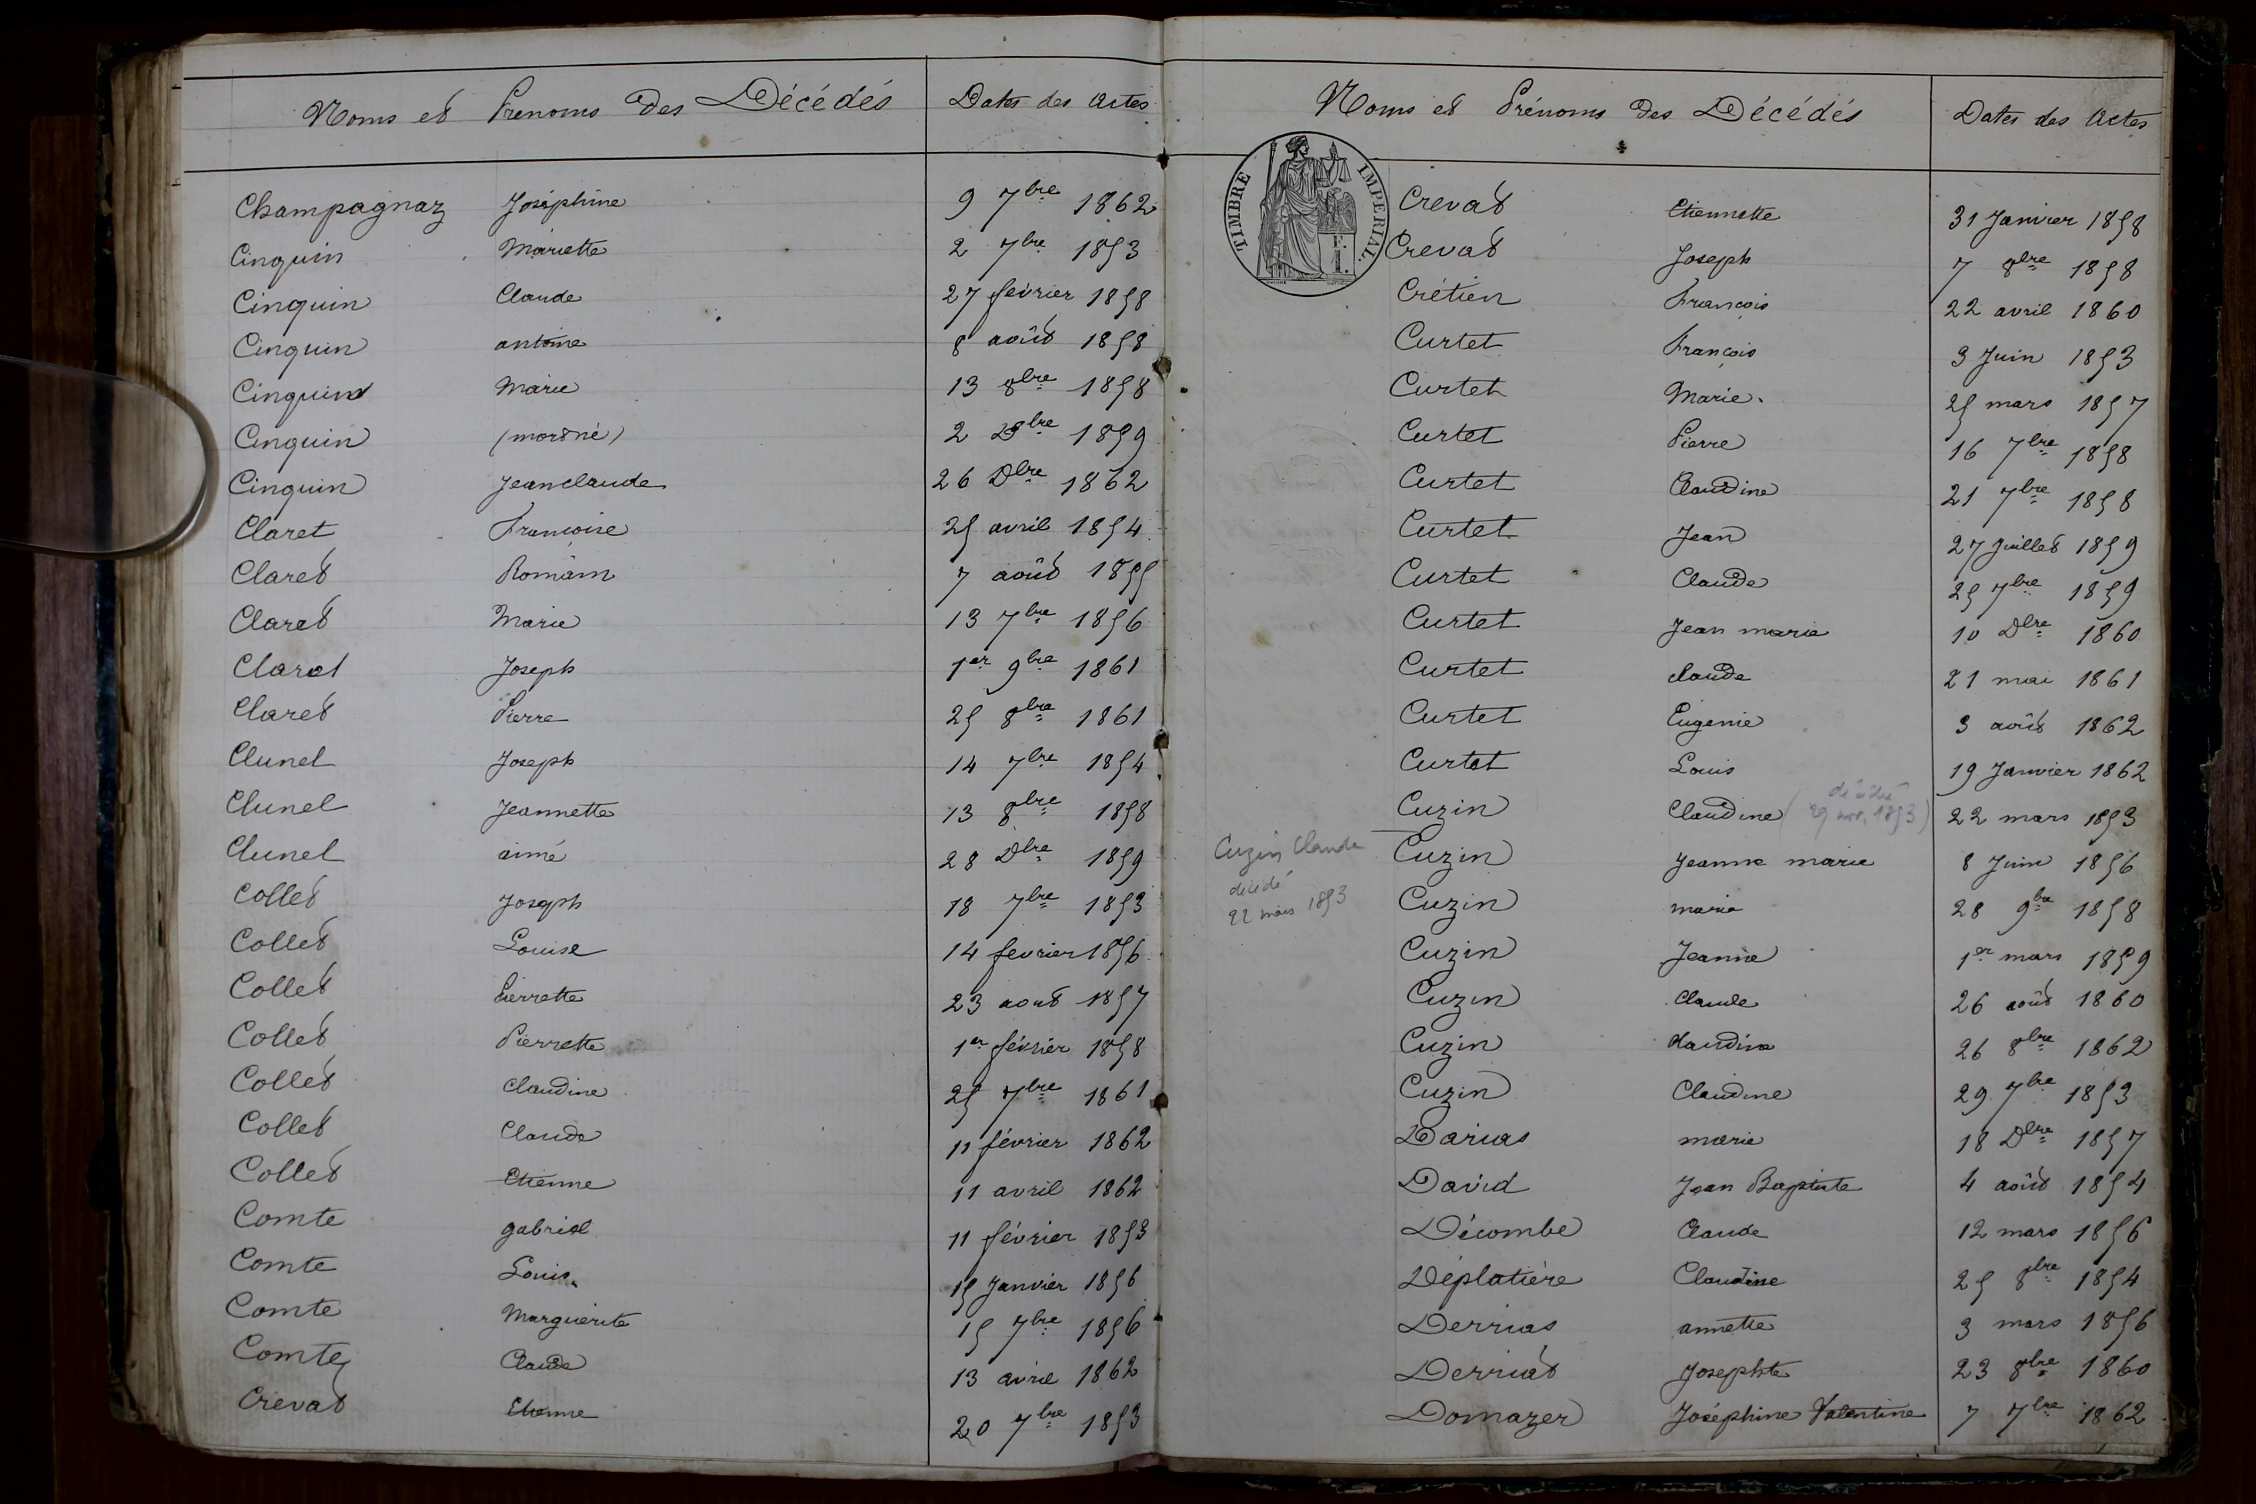 Noms et Prenoms des Décédés Dates des Actes
Champagnaz Joséphine 9 7bre 1862
Cinquin Mariette 2 7bre 1853
Cinquin Claude 27 février 1858
Cinquin antoine 8 août 1858
Cinquin Marie 13 8bre 1858
Cinquin (mort né) 2 1859
Cinquin Jean claude 26 Dbre 1862
Claret Francoise 25 avril 1854
Claret Romain 7 août 1855
Claret Marie 13 7bre 1856
Claret Joseph 1er 9bre 1861
Claret Pierre 25 8bre 1861
Clunet Joseph 14 7bre 1854
Clunet Jeannette 13 8bre 1858
Clunet aimé 28 Dbre 1859
Collet Joseph 18 7bre 1853
Collet Louise 14 fevrier 1856
Collet Pierrette 23 aout 1857
Collet Pierrette 1er février 1858
Collet Claudine 25 7bre 1861
Collet Claude 11 février 1862
Collet Etienne 11 avril 1862
Comte gabriel 11 février 1853
Comte Louis 15 Janvier 1856
Comte Marguerite 15 7bre 1856
Comte Claude 13 avril 1862
Crevat Etienne 20 7bre 1853
Noms et Prénoms des Décédés Dates des Actes
TIMBRE IMPERIAL.
Crevat Etiennette 31 Janvier 1858
Crevat Joseph 7 8bre 1858
Crétien François 22 avril 1860
Curtet François 3 Juin 1853
Curtet Marie 25 mars 1857
Curtet Pierre 16 7bre 1858
Curtet Claudine 21 7bre 1858
Curtet Jean 27 Juillet 1859
Curtet Claude 25 7bre 1859
Curtet Jean marie 10 Dbre 1860
Curtet claude 21 mai 1861
Curtet Eugenie 3 août 1862
Curtet Louis 19 Janvier 1862
Cuzin Claudine (décédé 29 nov. 1853) 22 mars 1853
Cuzin Claude
décédé
22 mars 1853
Cuzin Jeanne marie 8 Juin 1856
Cuzin marie 28 9bre 1858
Cuzin Jeanne 1er mars 1859
Cuzin Claude 26 août 1860
Cuzin claudine 26 8bre 1862
Cuzin Claudine 29 7bre 1853
Darias marie 18 Dbre 1857
David Jean Baptiste 4 août 1854
Décombe Claude 12 mars 1856
Déplatière Claudine 25 8bre 1854
Derrias annette 3 mars 1856
Derriat Josephte 23 8bre 1860
Domazer Joséphine Valentine 7 7bre 1862